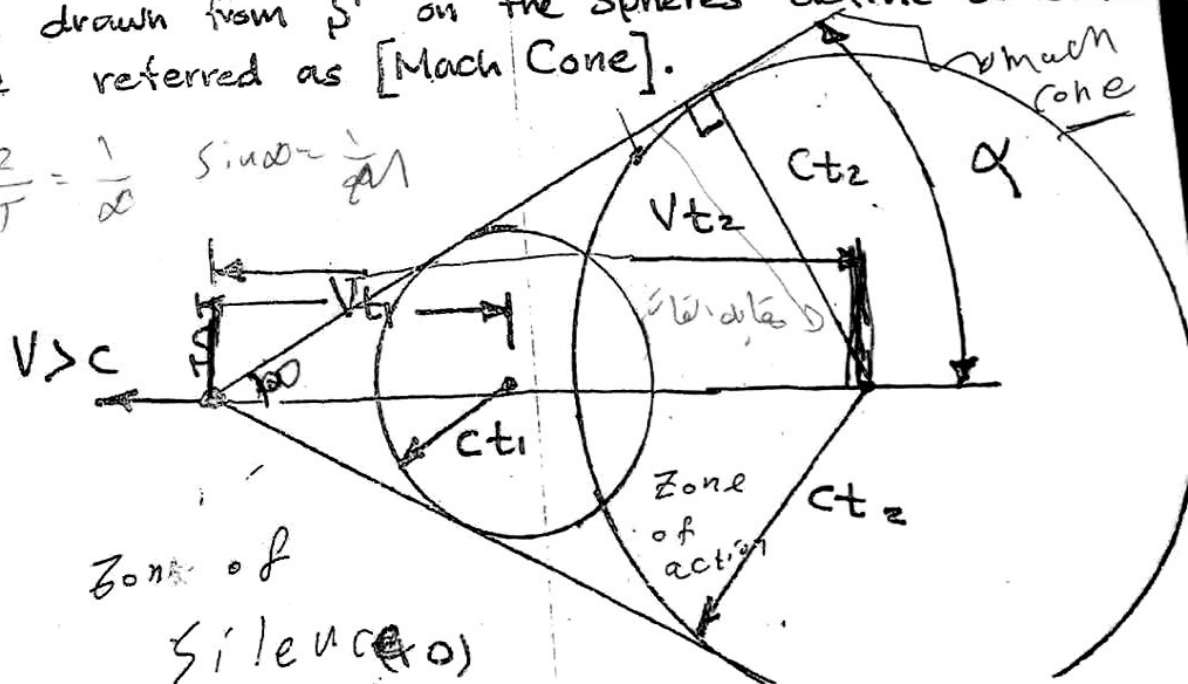 drawn from S on the spheres define
referred as [Mach Cone].
mach
cone
sin∝ =
= 1/∝
Ct₂
α
Vt₂
Vt₁
V>C
Ct₁
Zone
of
action
Ct₂
Zone of
Silence